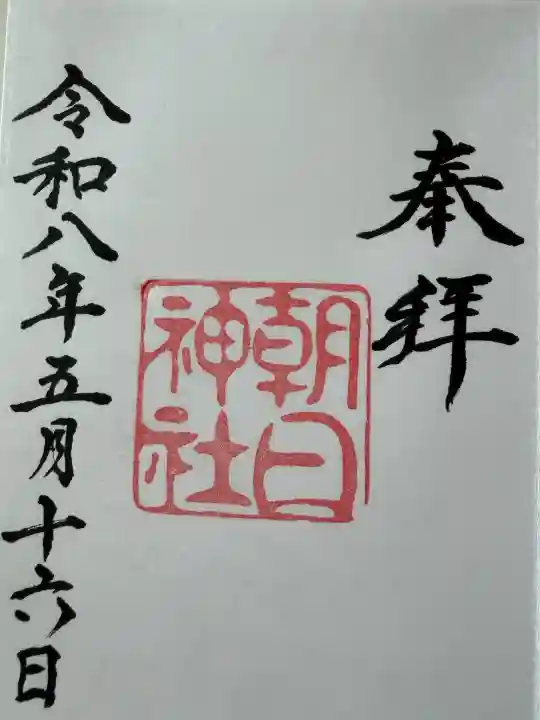 奉拝
朝日
神社
令和八年五月十六日